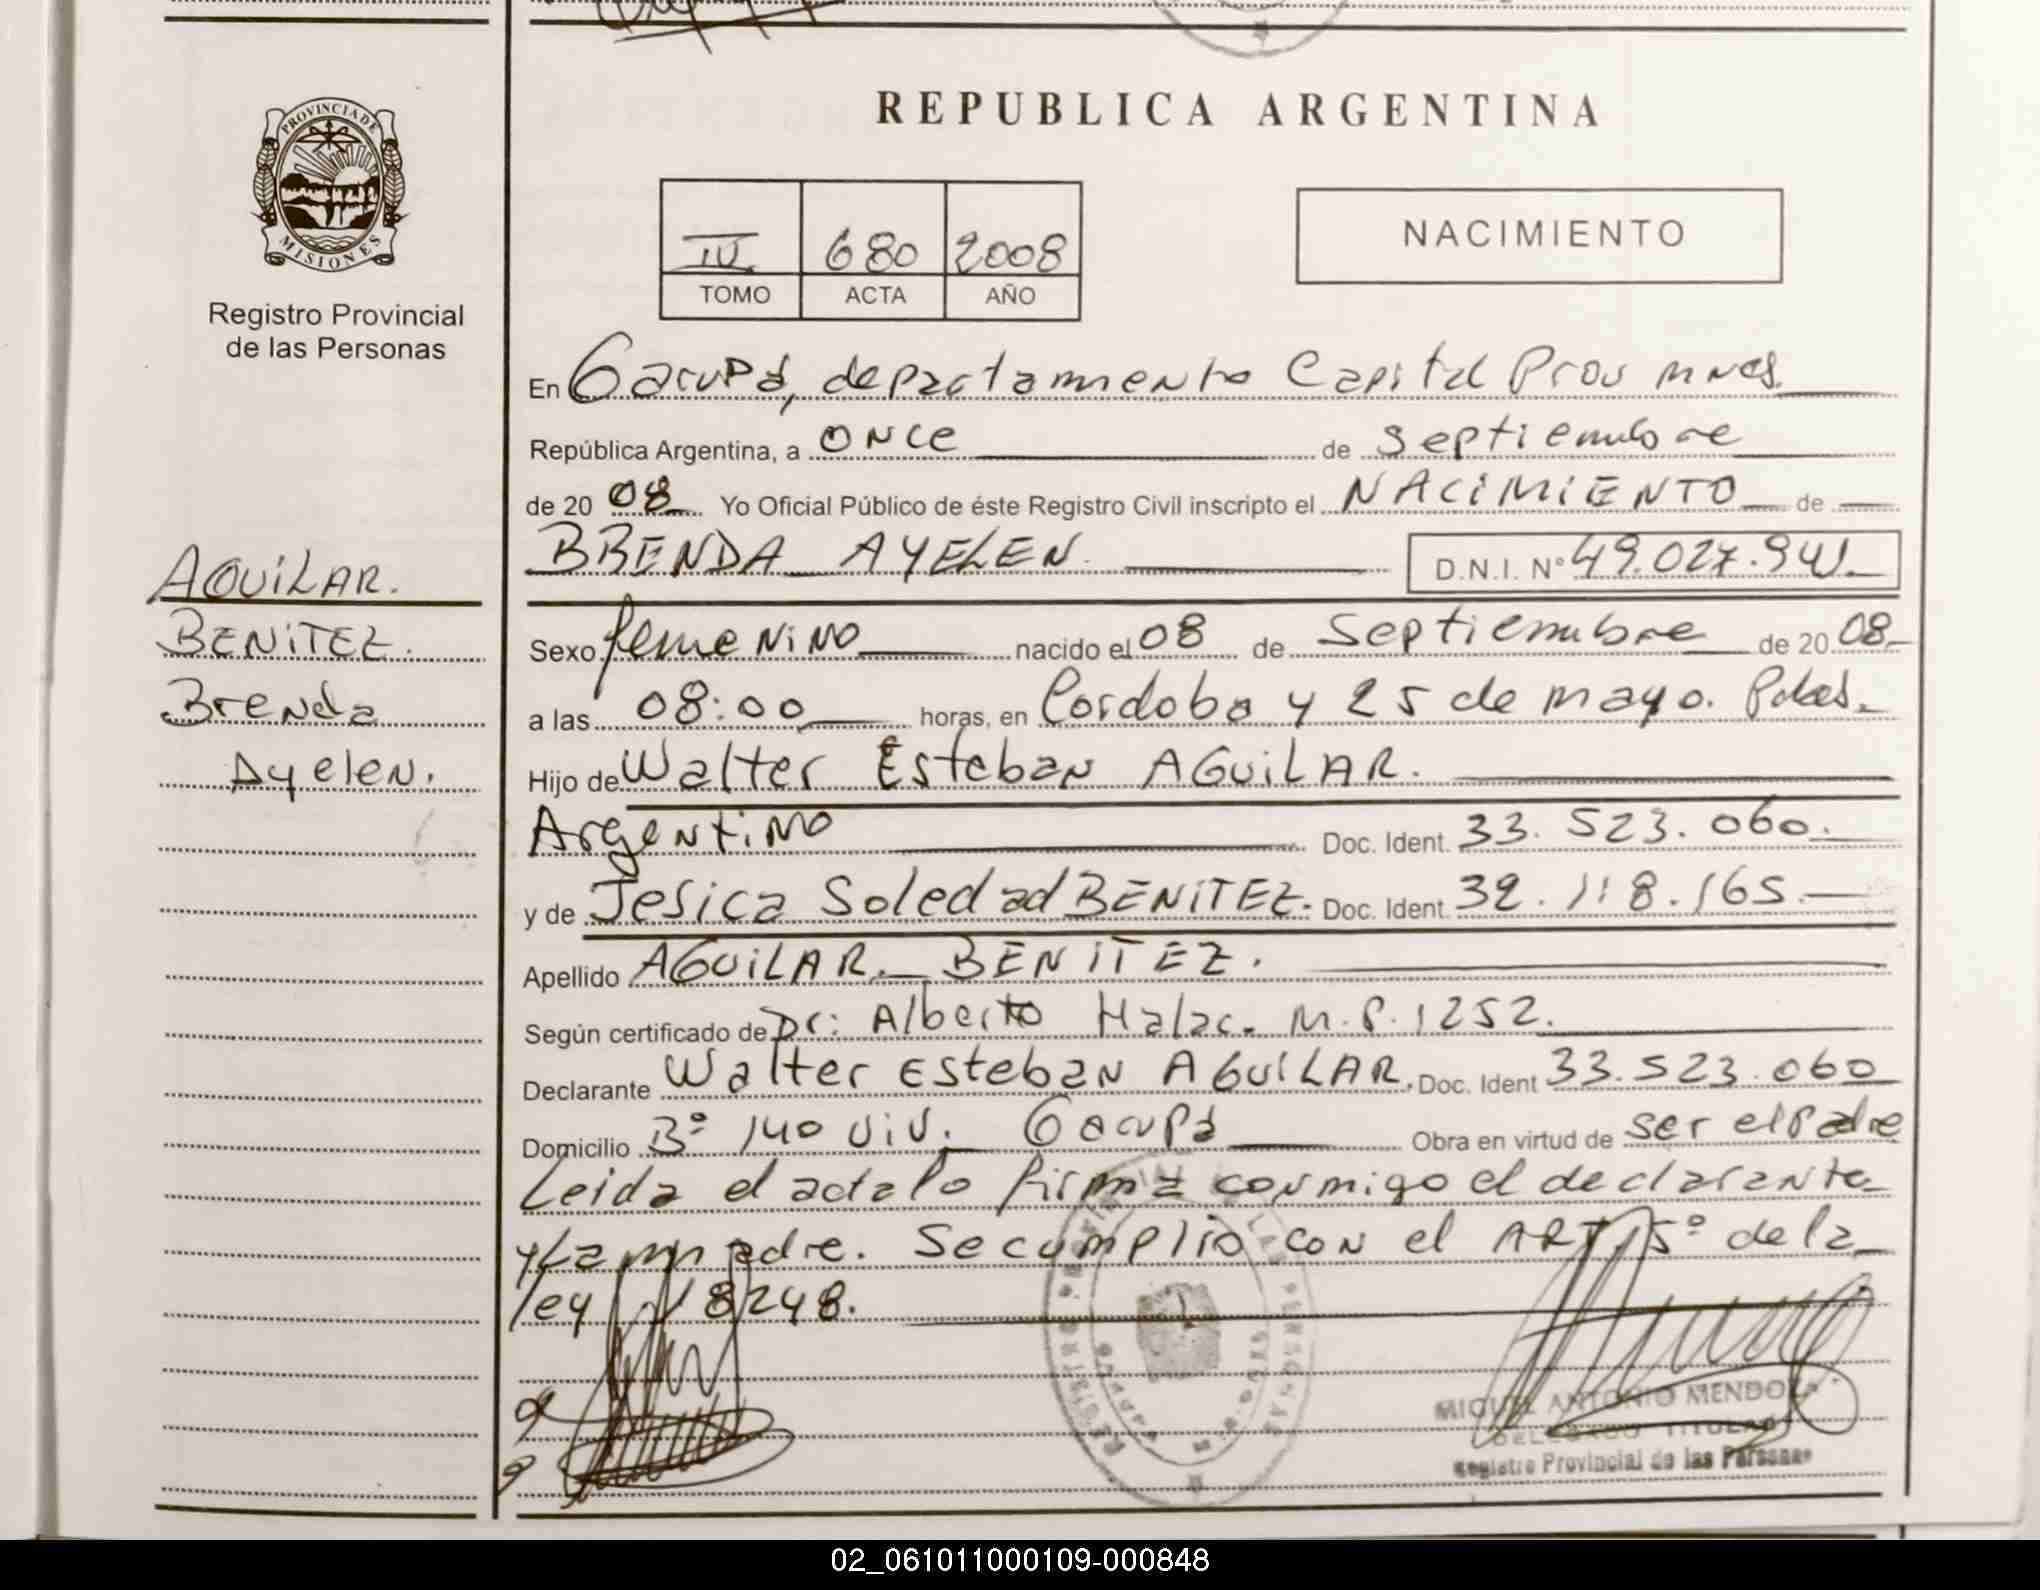 REPUBLICA ARGENTINA
PROVINCIA DE
MISIONES
Registro Provincial
de las Personas
680 2008
TOMO ACTA AÑO
NACIMIENTO
En Garupá, departamento Capital Prov mnes.
República Argentina, a once de septiembre
de 20 08 Yo Oficial Público de éste Registro Civil inscripto el NACIMIENTO de
BRENDA AYELEN. D.N.I. Nº 49.027.941.
AGUILAR.
BENITEZ.
Brenda
Ayelen.
Sexo femenino nacido el 08 de Septiembre de 20 08
a las 08:00 horas, en Cordoba y 25 de mayo. Pdas.
Hijo de Walter Esteban AGUILAR.
Argentino Doc. Ident. 33.523.060.
y de Jesica Soledad BENITEZ. Doc. Ident. 32.118.165.
Apellido AGUILAR BENITEZ.
Según certificado de Dr: Alberto Halac. M.P. 1252.
Declarante Walter Esteban AGUILAR. Doc. Ident 33.523.060
Domicilio Bº 140 viv. Garupá Obra en virtud de ser el Padre
Leida el acta lo firma conmigo el declarante
y La madre. Se cumplio con el ART 5º de la
ley 18248.
MIGUEL ANTONIO MENDOZA
DELEGADO TITULAR
Registro Provincial de las Personas
REGISTRO PROVINCIAL DE LAS PERSONAS
GARUPA
02_061011000109-000848